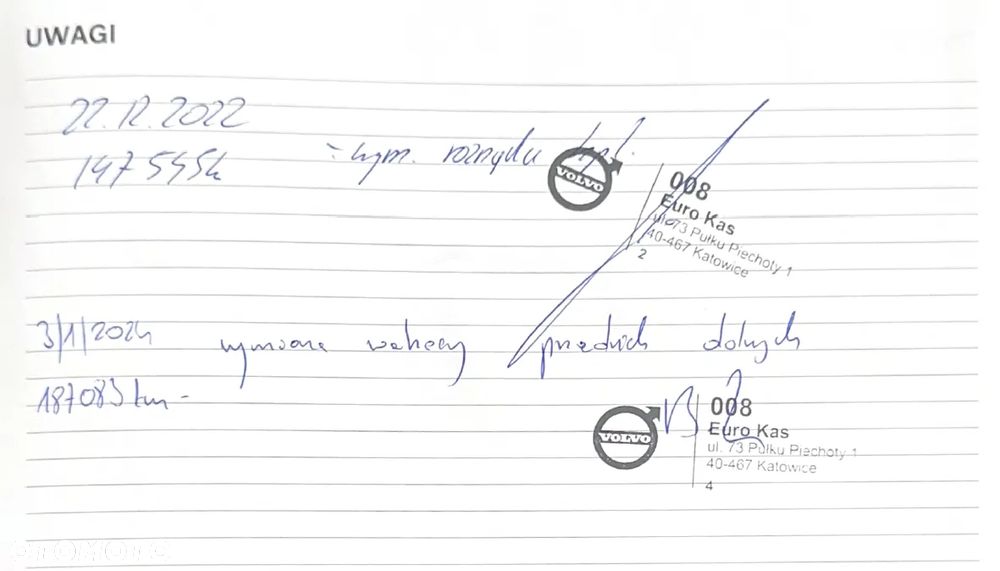 UWAGI
22.12.2022
147545k - wym. rozrządu kpl.
VOLVO
008
Euro Kas
ul. 73 Pułku Piechoty 1
40-467 Katowice
2
3/1/2024 wymiana wahaczy przednich dolnych
187083 km -
VOLVO
008
Euro Kas
ul. 73 Pułku Piechoty 1
40-467 Katowice
4
OTOMOTO